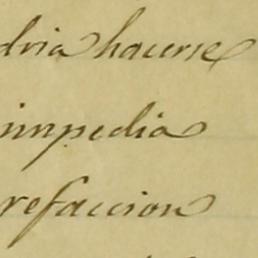 dria hacerse
impedia
refaccion